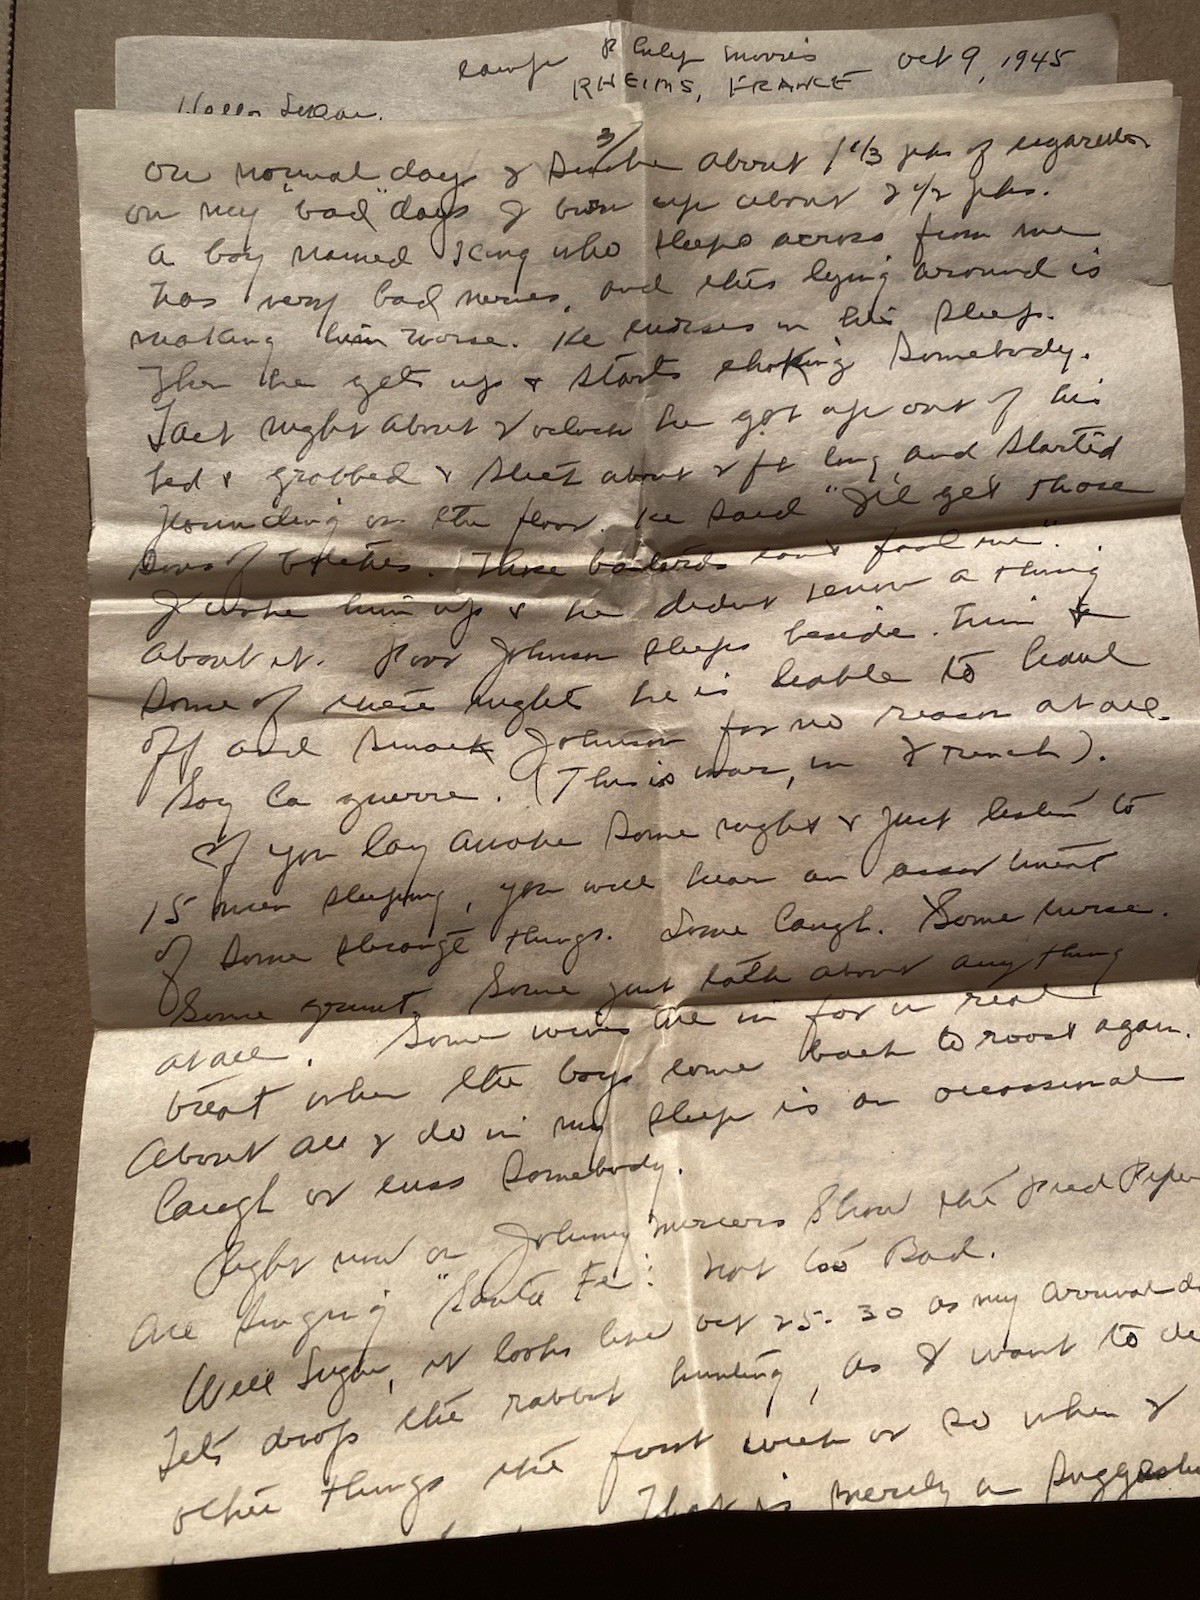 Camp Philip Morris Oct 9, 1945
RHEIMS, FRANCE
Hello Sugar.
3/
On normal days I smoke about 1 1/3 pks of cigarettes
on my "bad" days I burn up about 2 1/2 pks.
A boy named King who sleeps across from me
has very bad nerves, and this lying around is
making him worse. He curses in his sleep.
Then he gets up & starts choking somebody.
Last night about 2 oclock he got up out of his
bed & grabbed a stick about 2 ft long and started
pounding on the floor. He said "I'll get those
sons of bitches. Those bastards can't fool me".
I woke him up & he didnt know a thing
about it. Poor Johnson sleeps beside him &
some of these nights he is liable to haul
off and smack Johnson for no reason at all.
Soy La guerre. (This is war, in French).
If you lay awake some night & just listen to
15 men sleeping, you will hear an assortment
of some strange things. Some laugh. Some curse.
Some grunt. Some just talk about anything
at all. Some wives are in for a real
treat when the boys come back to roost again.
About all I do in my sleep is an occassional
laugh or cuss somebody.
Right now on Johnny Mercers Show the Pied Piper
are singing "Santa Fe". Not too Bad.
Well Sugar, it looks like Oct 25-30 as my arrival
Lets drop the rabbit hunting, as I want to
other things the first week or so when I
That is merely a